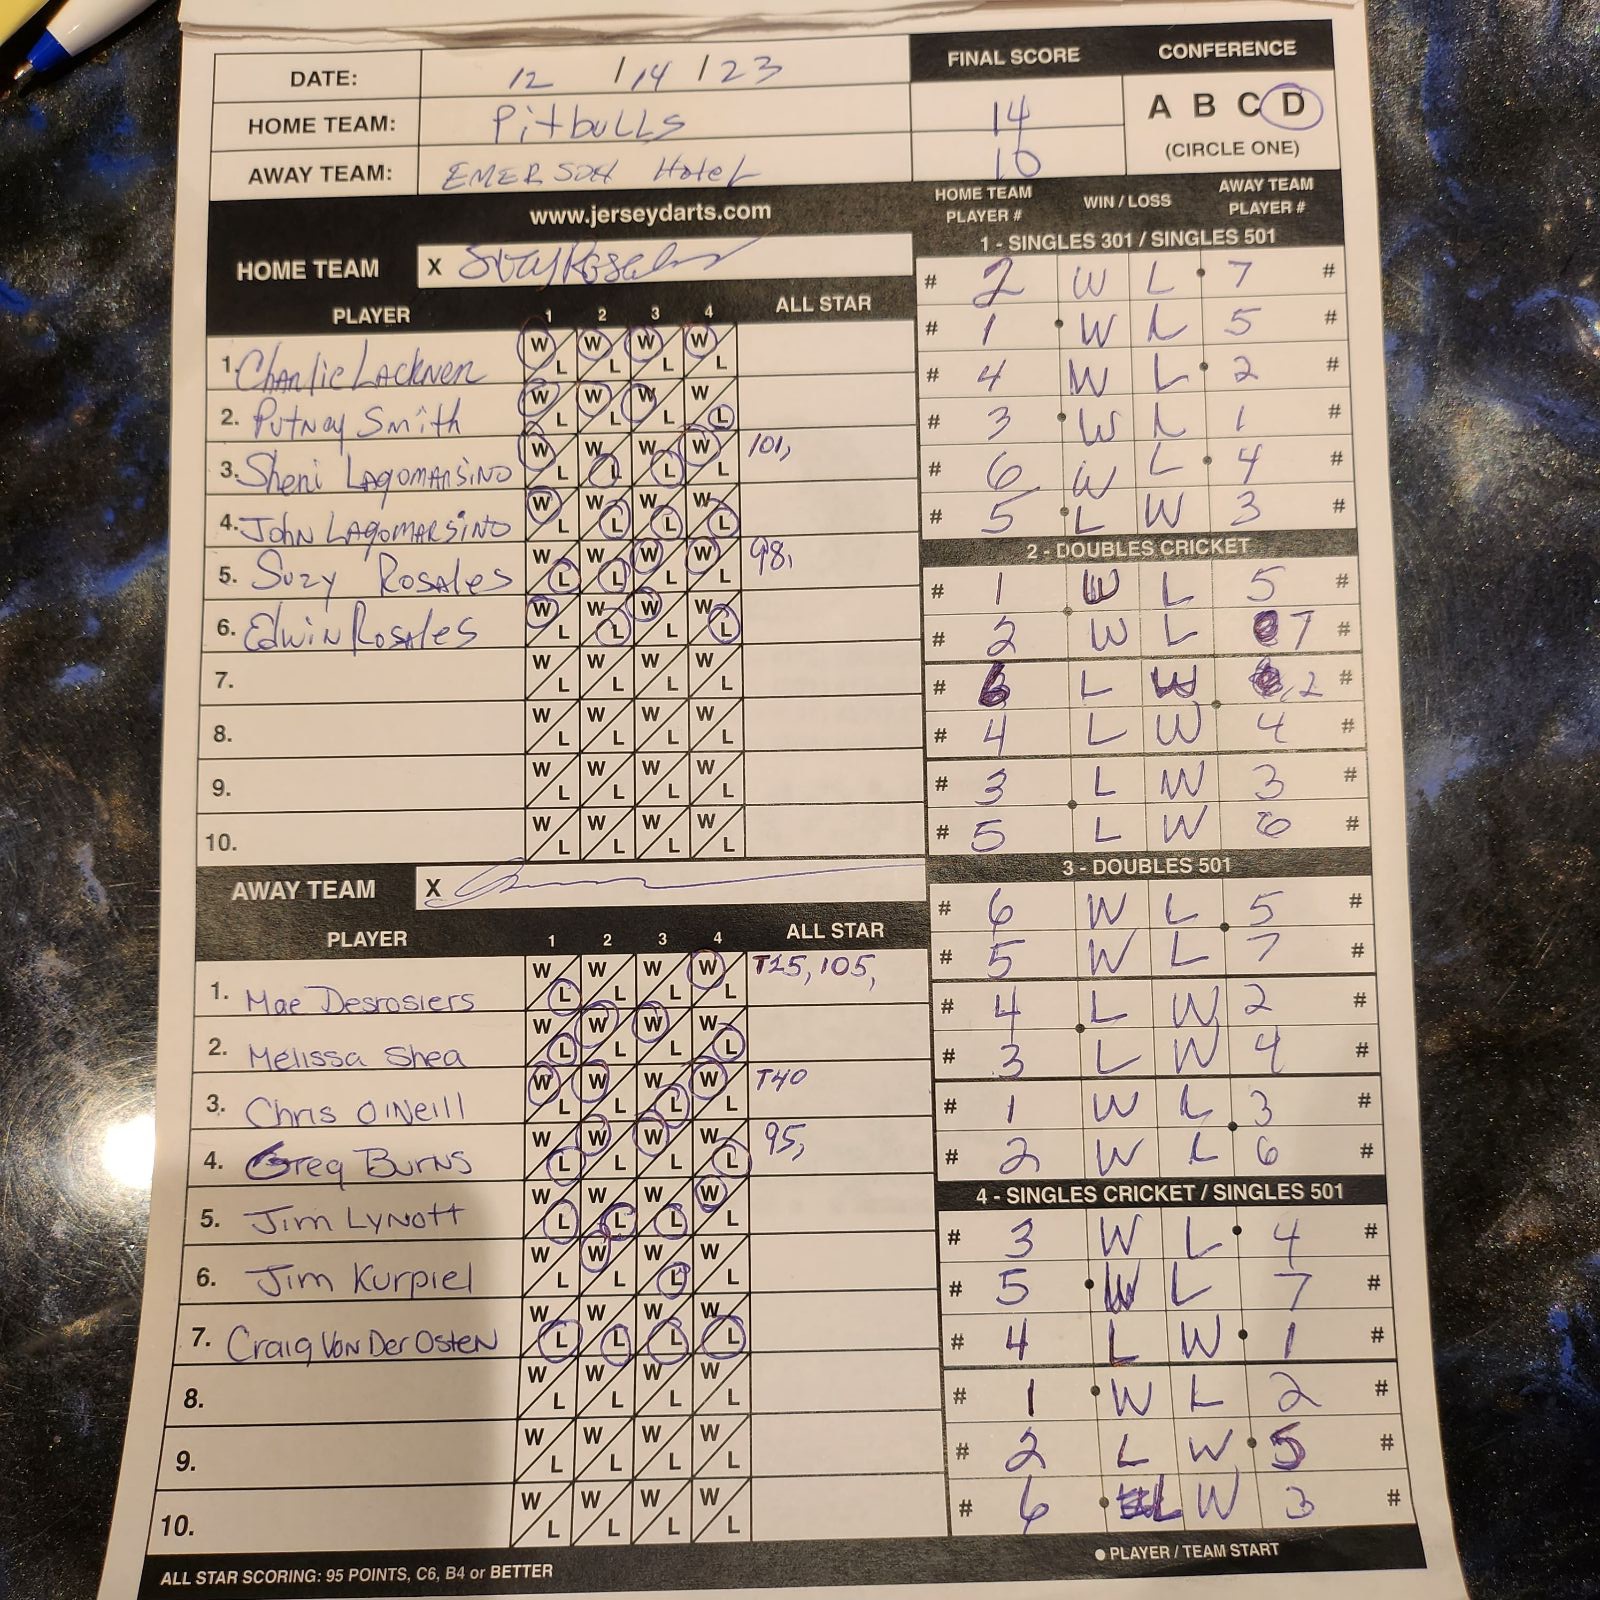 DATE: 12 / 14 / 23
HOME TEAM: Pitbulls
AWAY TEAM: EMERSON Hotel
FINAL SCORE
14
10
CONFERENCE
A B C D
(CIRCLE ONE)
www.jerseydarts.com
HOME TEAM X Suzy Rosales
PLAYER 1 2 3 4 ALL STAR
1. Charlie Lackner W L W L W L W L
2. Putnay Smith W L W L W L W L
3. Sheri Lagomarsino W L W L W L W L 101,
4. John Lagomarsino W L W L W L W L
5. Suzy Rosales W L W L W L W L 98,
6. Edwin Rosales W L W L W L W L
7. W L W L W L W L
8. W L W L W L W L
9. W L W L W L W L
10. W L W L W L W L
AWAY TEAM X
PLAYER 1 2 3 4 ALL STAR
1. Mae Desrosiers W L W L W L W L T25, 105,
2. Melissa Shea W L W L W L W L
3. Chris O'Neill W L W L W L W L T40
4. Greg Burns W L W L W L W L 95,
5. Jim Lynott W L W L W L W L
6. Jim Kurpiel W L W L W L W L
7. Craig Von Der Osten W L W L W L W L
8. W L W L W L W L
9. W L W L W L W L
10. W L W L W L W L
ALL STAR SCORING: 95 POINTS, C6, B4 or BETTER
HOME TEAM PLAYER # WIN / LOSS AWAY TEAM PLAYER #
1 - SINGLES 301 / SINGLES 501
# 2 W L 7 #
# 1 W L 5 #
# 4 W L 2 #
# 3 W L 1 #
# 6 W L 4 #
# 5 L W 3 #
2 - DOUBLES CRICKET
# 1 W L 5 #
# 2 W L 7 #
# 6 L W 2 #
# 4 L W 4 #
# 3 L W 3 #
# 5 L W 6 #
3 - DOUBLES 501
# 6 W L 5 #
# 5 W L 7 #
# 4 L W 2 #
# 3 L W 4 #
# 1 W L 3 #
# 2 W L 6 #
4 - SINGLES CRICKET / SINGLES 501
# 3 W L 4 #
# 5 W L 7 #
# 4 L W 1 #
# 1 W L 2 #
# 2 L W 5 #
# 6 L W 3 #
PLAYER / TEAM START